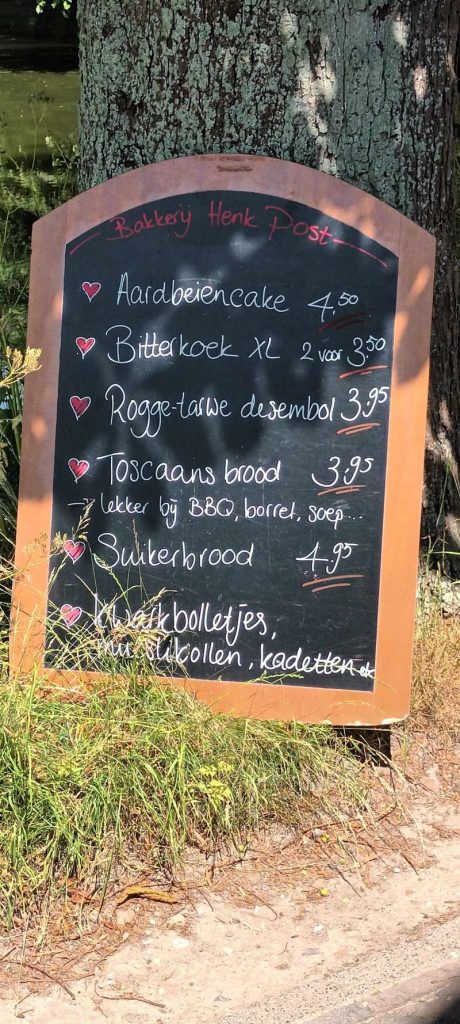 Bakkerij Henk Post
Aardbeiencake 4.50
Bitterkoek XL 2 voor 3.50
Rogge-tarwe desembol 3.95
Toscaans brood 3.95
→ lekker bij BBQ, borrel, soep...
Suikerbrood 4.95
Kwarkbolletjes,
muislibollen, kadetten etc